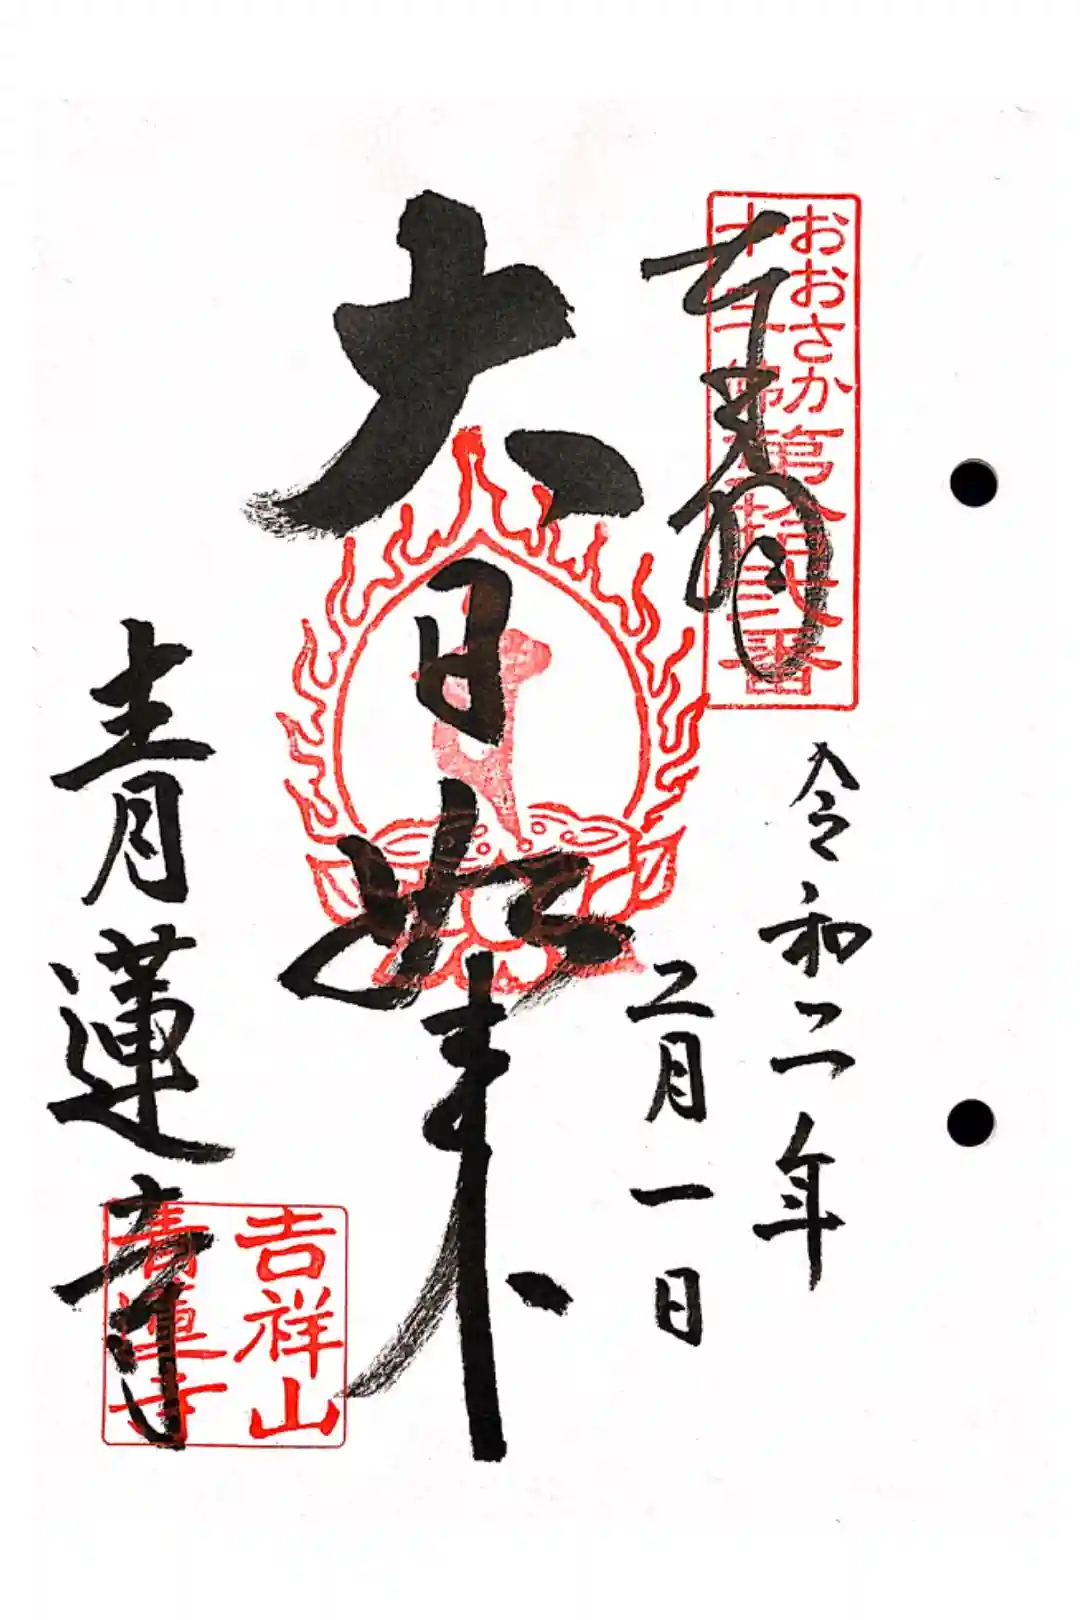 奉拝
おおさか
十三佛
第拾弐番
令和二年
二月一日
大日如来
青蓮寺
吉祥山
青蓮寺